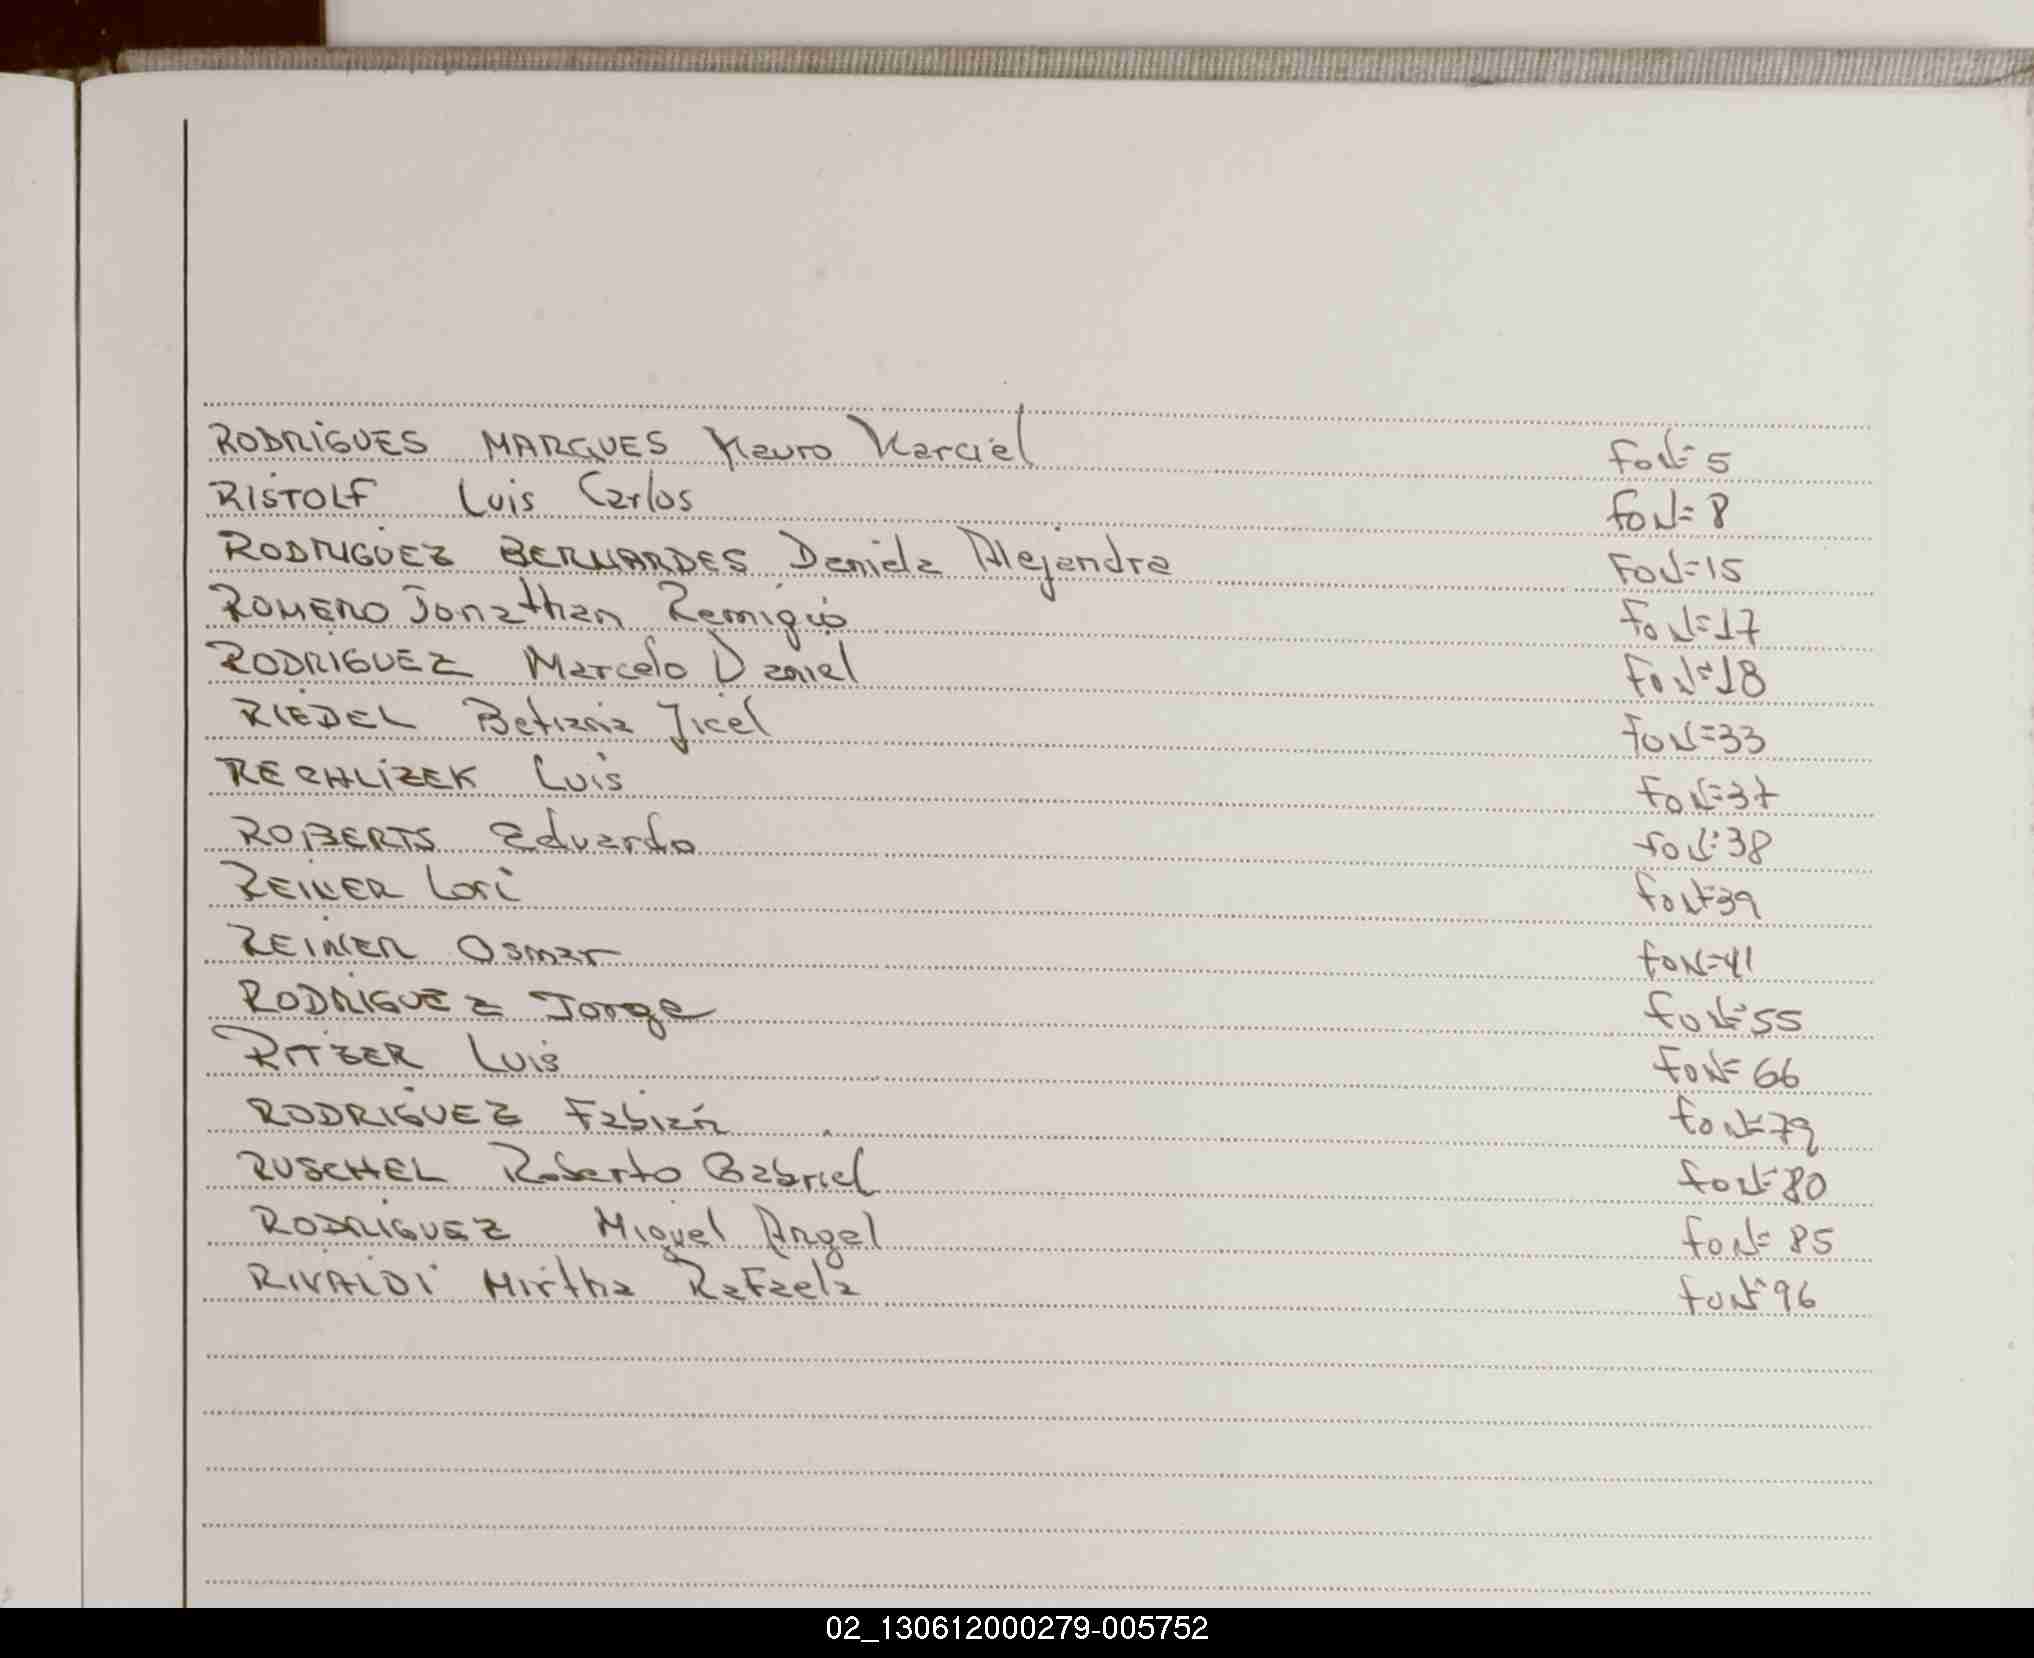 RODRIGUES MARQUES Mauro Marciel Fo Nº 5
RISTOLF Luis Carlos Fo Nº 8
RODRIGUEZ BERNARDES Daniela Alejandra Fo Nº 15
ROMERO Jonathan Remigio Fo Nº 17
RODRIGUEZ Marcelo Daniel Fo Nº 18
RIEDEL Betiania Jicel Fo Nº 33
RECHLIZEK Luis Fo Nº 37
ROBERTS Eduardo Fo Nº 38
REINER Lori Fo Nº 39
REINER Osmar Fo Nº 41
RODRIGUEZ Jorge Fo Nº 55
RITZER Luis Fo Nº 66
RODRIGUEZ Fabián Fo Nº 79
RUSCHEL Roberto Gabriel Fo Nº 80
RODRIGUEZ Miguel Angel Fo Nº 85
RIVALDI Mirtha Rafaela Fo Nº 96
02_130612000279-005752